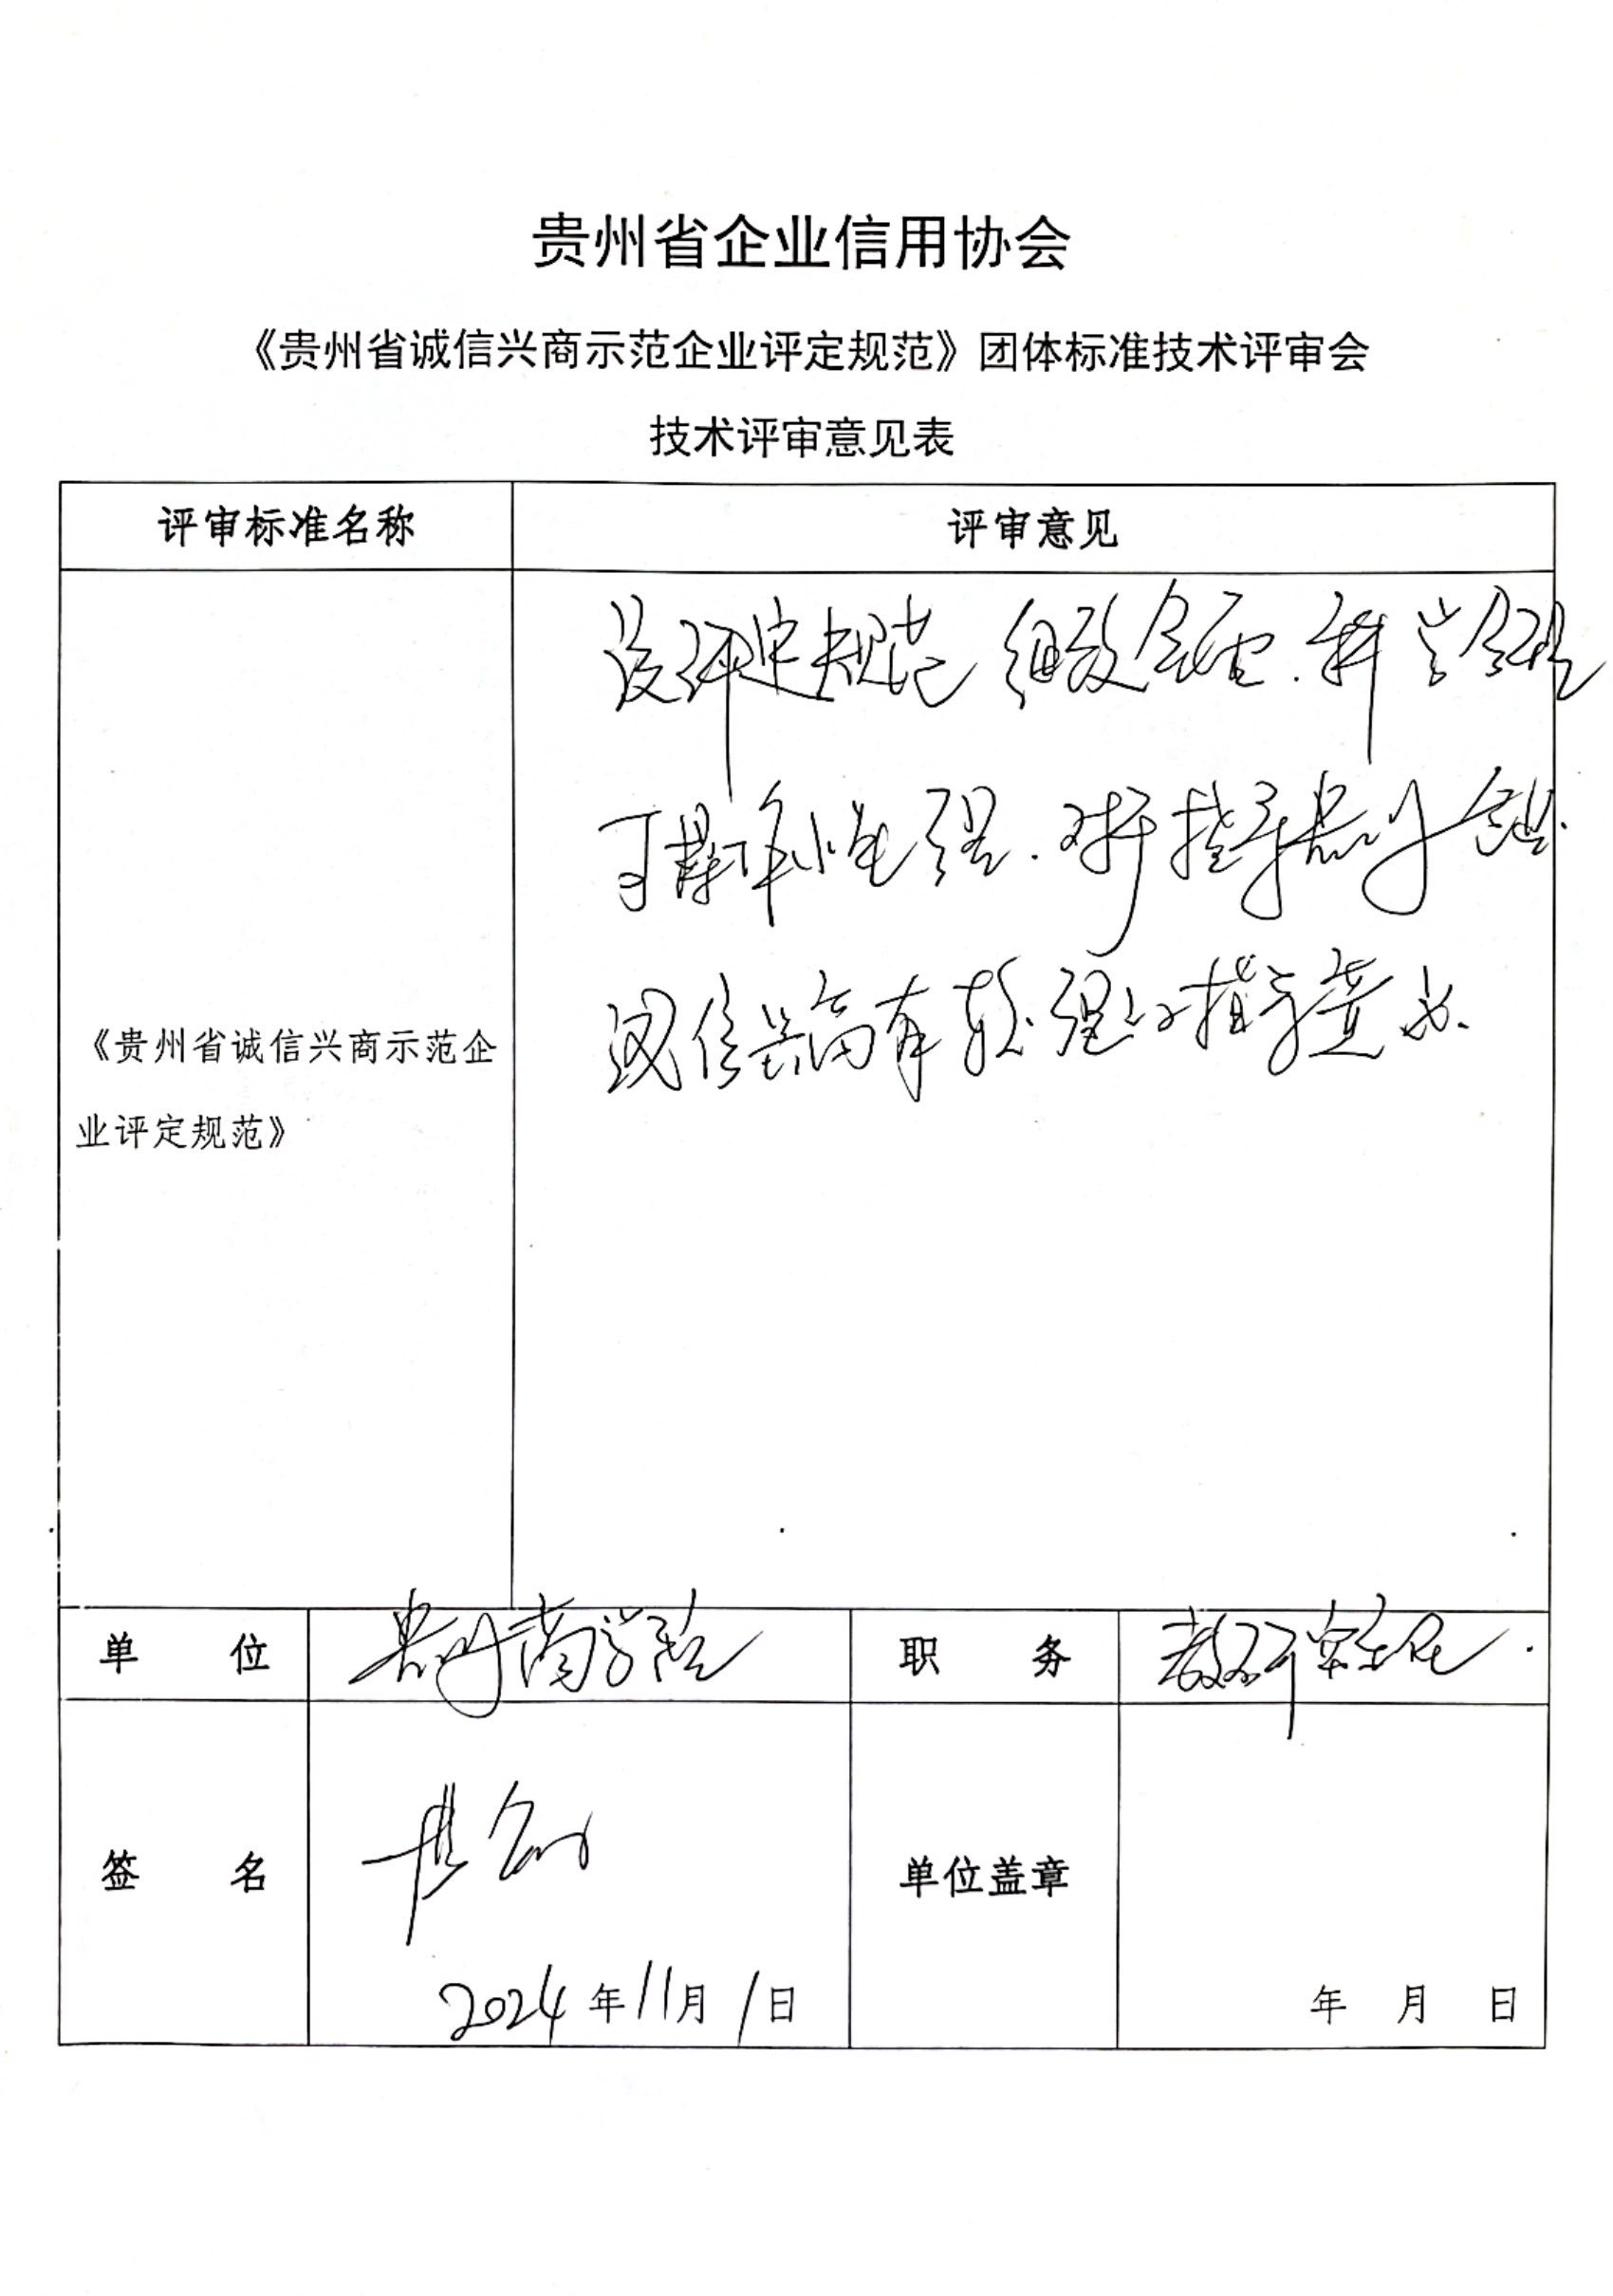 贵州省企业信用协会
《贵州省诚信兴商示范企业评定规范》团体标准技术评审会
技术评审意见表
评审标准名称 评审意见
《贵州省诚信兴商示范企
业评定规范》
该评定规范 细致全面.科学合理
可操作性强.对于指导贵州企业
诚信兴商有较强的指导意义.
单 位 贵州商学院 职 务 教研室主任.
签 名 单位盖章
2024年11月1日 年 月 日